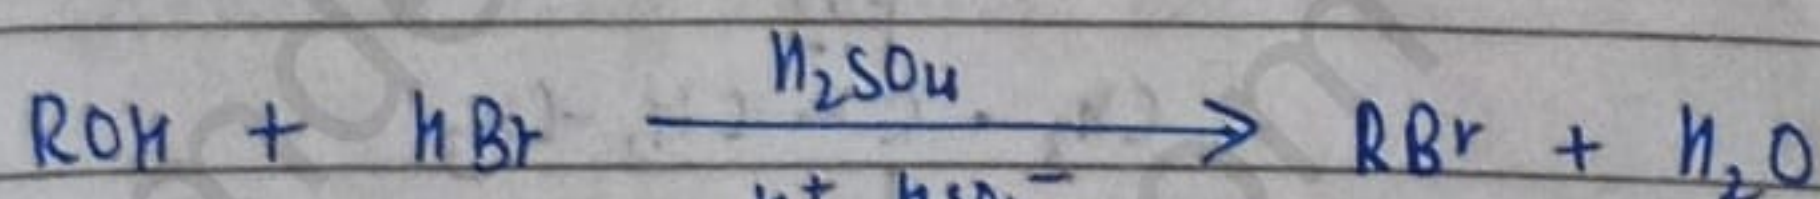 ROH + HBr H₂SO₄ → RBr + H₂O